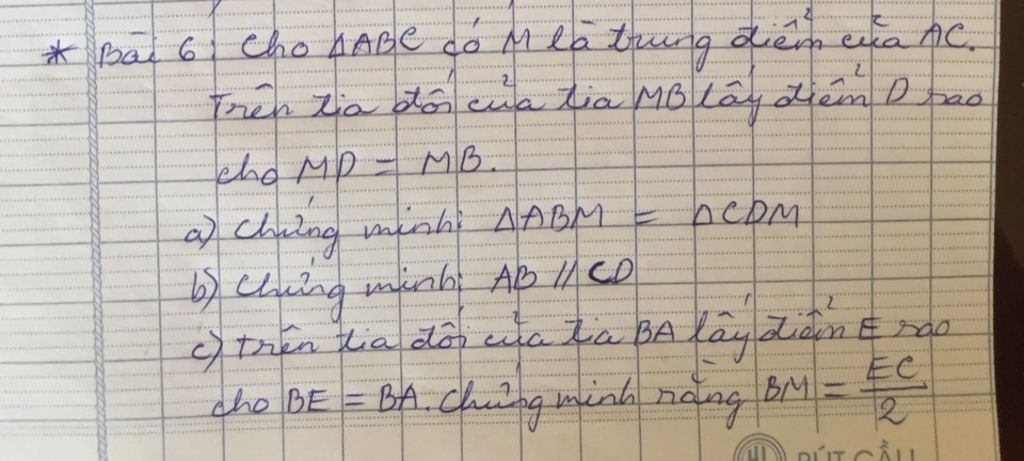 * Bài 6: Cho ΔABC có M là trung điểm của AC.
Trên tia đối của tia MB lấy điểm D sao
cho MD = MB.
a) Chứng minh: ΔABM = ΔCDM
b) Chứng minh: AB // CD
c) Trên tia đối của tia BA lấy điểm E sao
cho BE = BA. Chứng minh rằng BM = EC/2